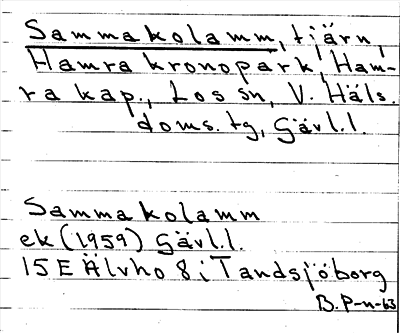 Sammakolamm, tjärn,
Hamra kronopark, Ham-
ra kap., Los sn, V. Häls.
doms. tg, Gävl.l.
Sammakolamm
ek (1959) Gävl.l.
15E Älvho 8 i Tandsjöborg
B. P-n-63